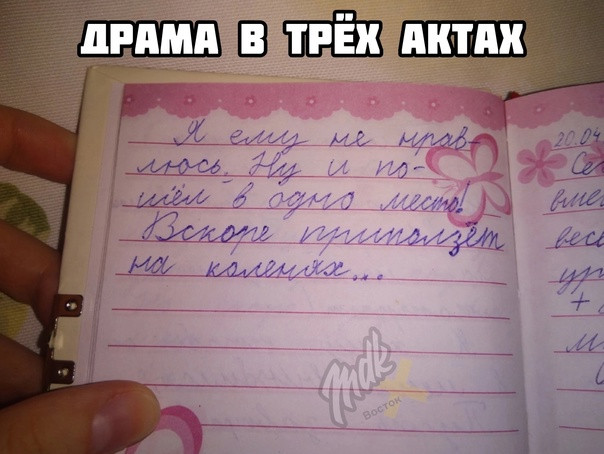 ДРАМА В ТРЁХ АКТАХ
Я ему не нрав-
люсь. Ну и по-
шёл в одно место!
Вскоре приползёт
на коленях...
20.04
весь
+
Mdk
Восток